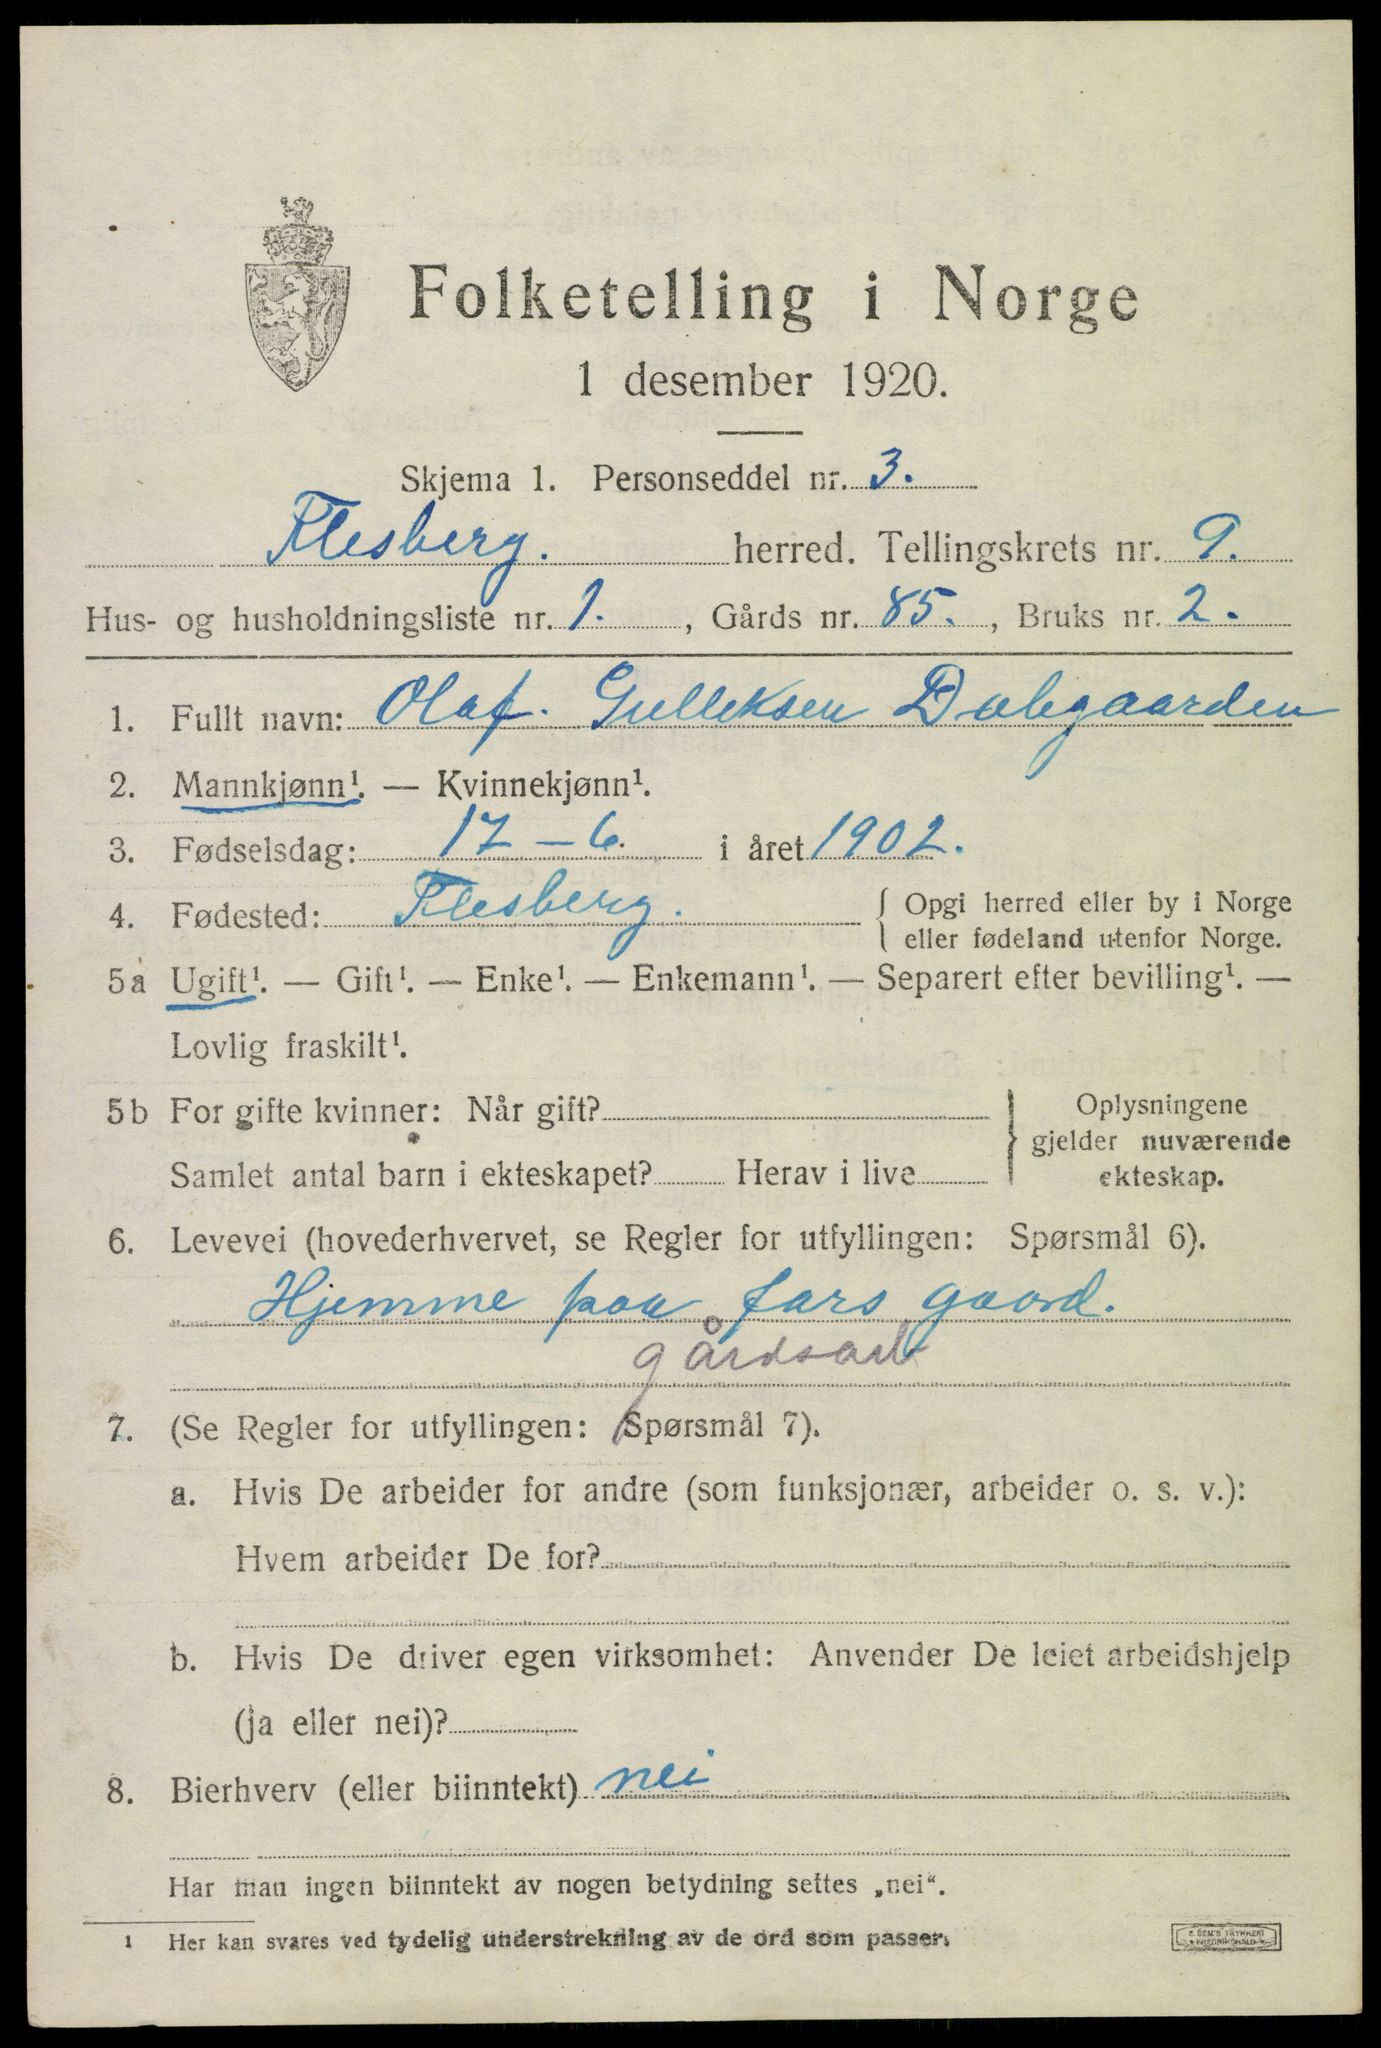 Folketelling i Norge
1 desember 1920.
Skjema 1. Personseddel nr. 3.
Flesberg. herred. Tellingskrets nr. 9.
Hus- og husholdningsliste nr. 1. , Gårds nr. 85. , Bruks nr. 2.
1. Fullt navn: Olaf. Gulleksen Dalsgaarden
2. Mannkjønn¹. — Kvinnekjønn¹.
3. Fødselsdag: 17 – 6. i året 1902.
4. Fødested: Flesberg. { Opgi herred eller by i Norge
eller fødeland utenfor Norge.
5a Ugift¹. — Gift¹. — Enke¹. — Enkemann¹. — Separert efter bevilling¹. —
Lovlig fraskilt¹.
5b For gifte kvinner: Når gift? } Oplysningene
gjelder nuværende
Samlet antal barn i ekteskapet? Herav i live ekteskap.
6. Levevei (hovederhvervet, se Regler for utfyllingen: Spørsmål 6).
Hjemme paa fars gaard.
gårdsarb
7. (Se Regler for utfyllingen: Spørsmål 7).
a. Hvis De arbeider for andre (som funksjonær, arbeider o. s. v.):
Hvem arbeider De for?
b. Hvis De driver egen virksomhet: Anvender De leiet arbeidshjelp
(ja eller nei)?
8. Bierhverv (eller biinntekt) nei
Har man ingen biinntekt av nogen betydning settes „nei".
1 Her kan svares ved tydelig understrekning av de ord som passer.